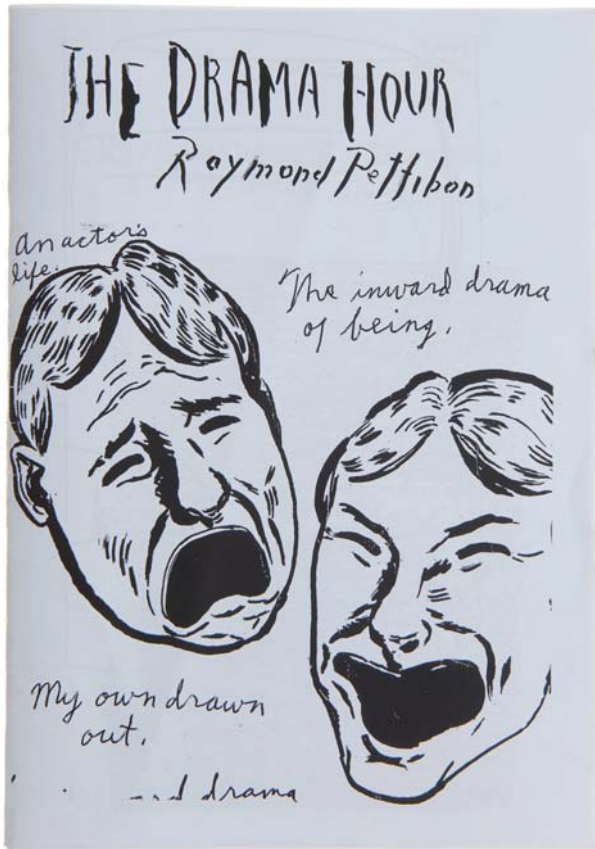 THE DRAMA HOUR
Raymond Pettibon
An actor's
life.
The inward drama
of being.
My own drawn
out.
and drama